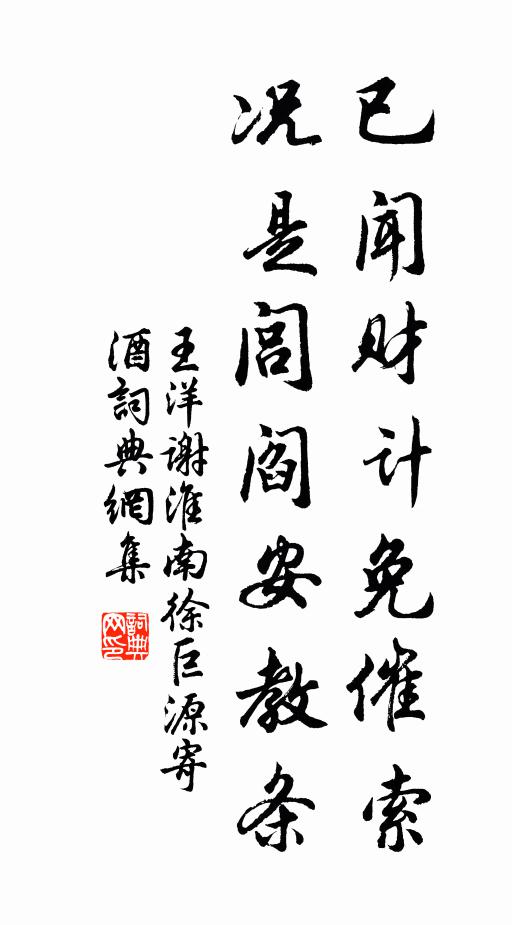 已闻财计免催索
况是闾阎安教条
王洋谢淮南徐巨源寄
酒詞典網集
詞典网印